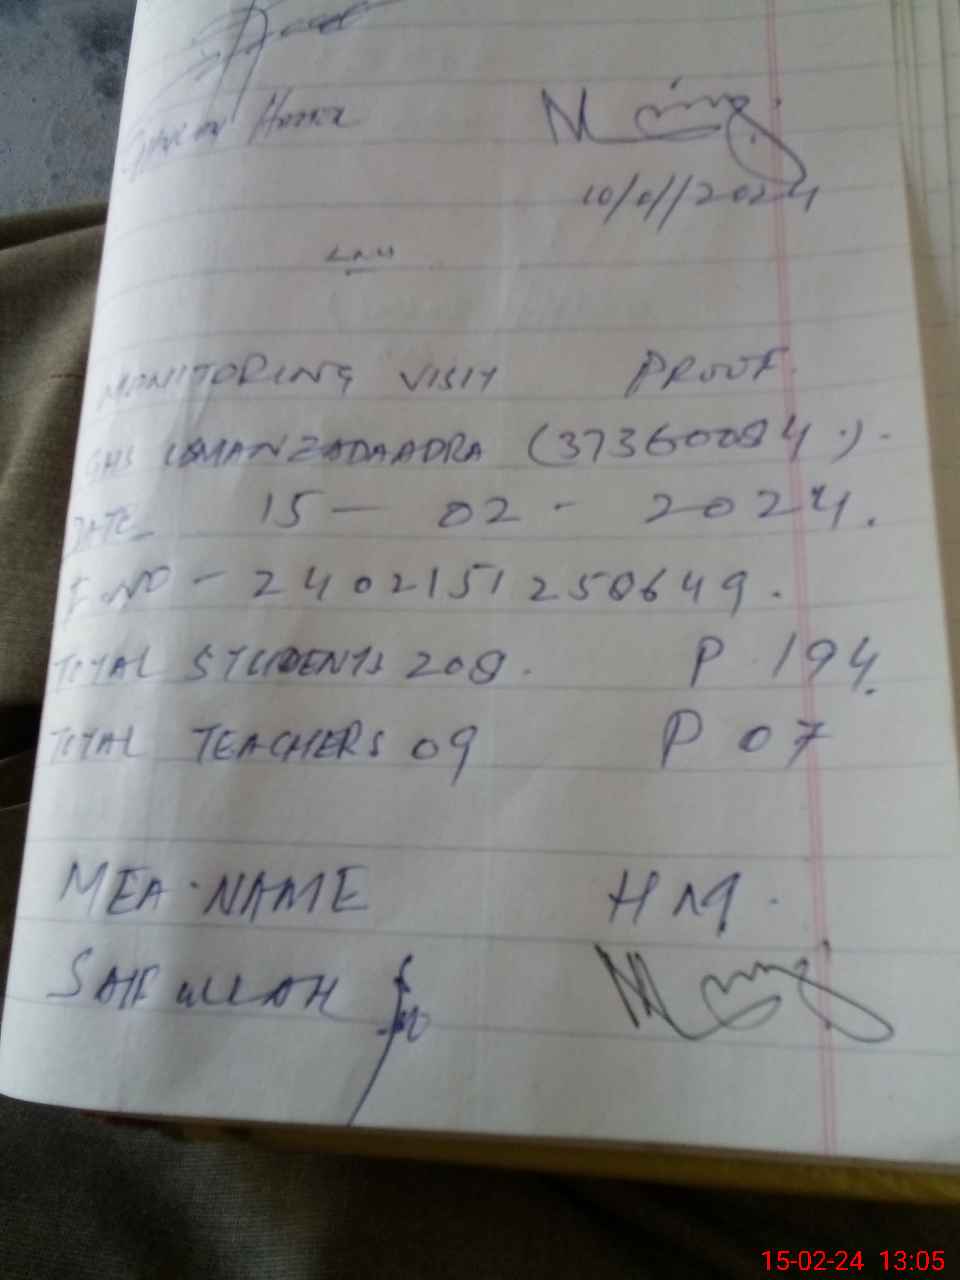 10/01/2024
MONITORING VISIT PROOF.
GHS USMANZADA ADRA (37360084).
DATE 15 - 02 - 2024.
F.NO - 2402151250649.
TOTAL STUDENTS 208. P 194.
TOTAL TEACHERS 09 P 07
MEA. NAME HM.
SAIF ULLAH
15-02-24 13:05